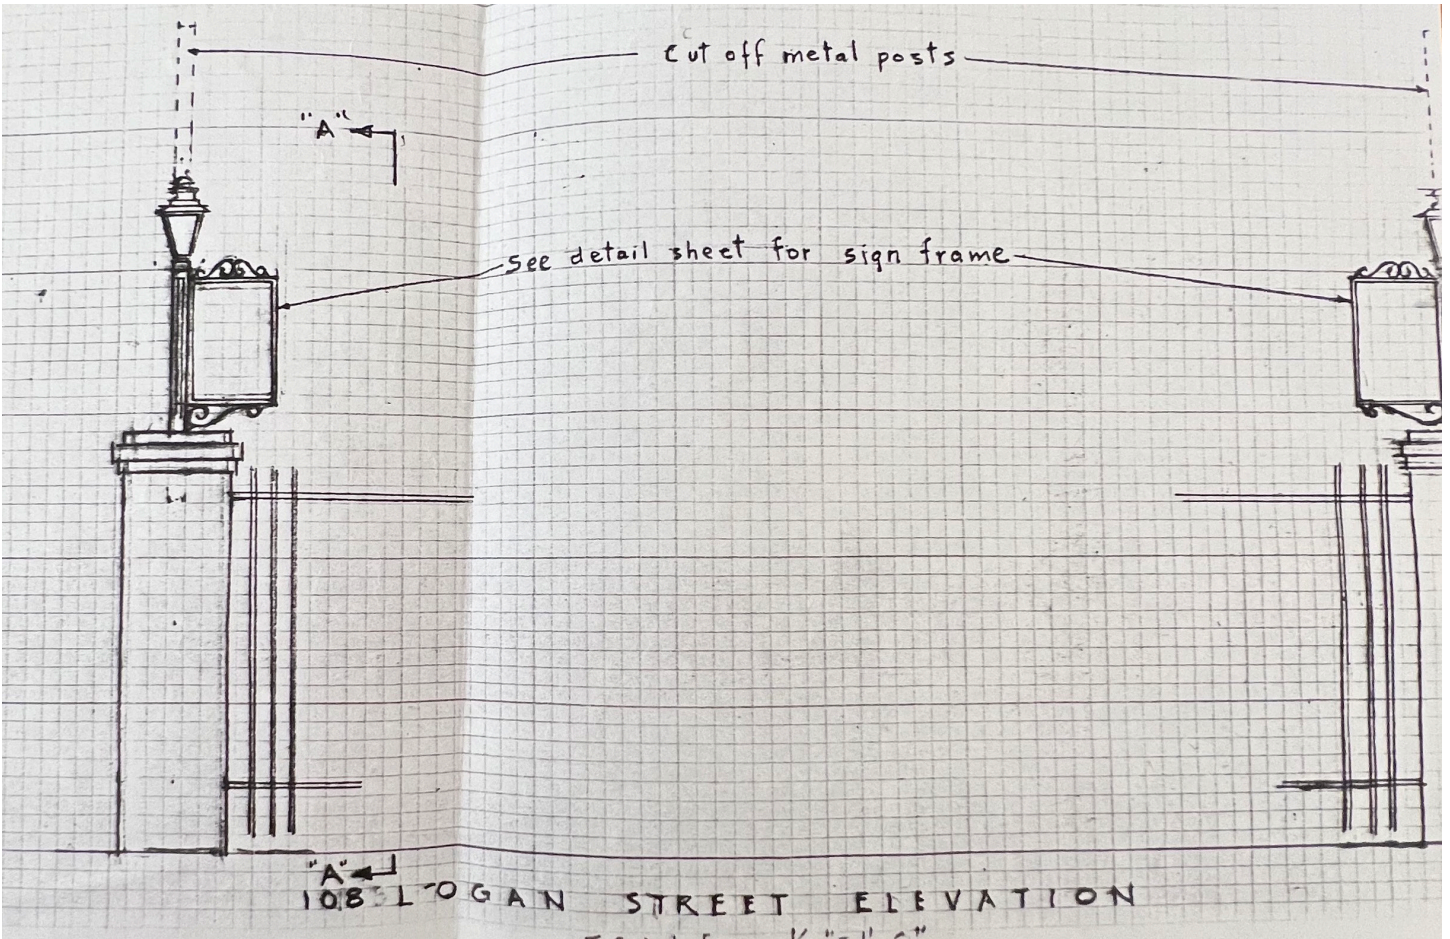 Cut off metal posts
"A"
See detail sheet for sign frame
"A"
108 LOGAN STREET ELEVATION